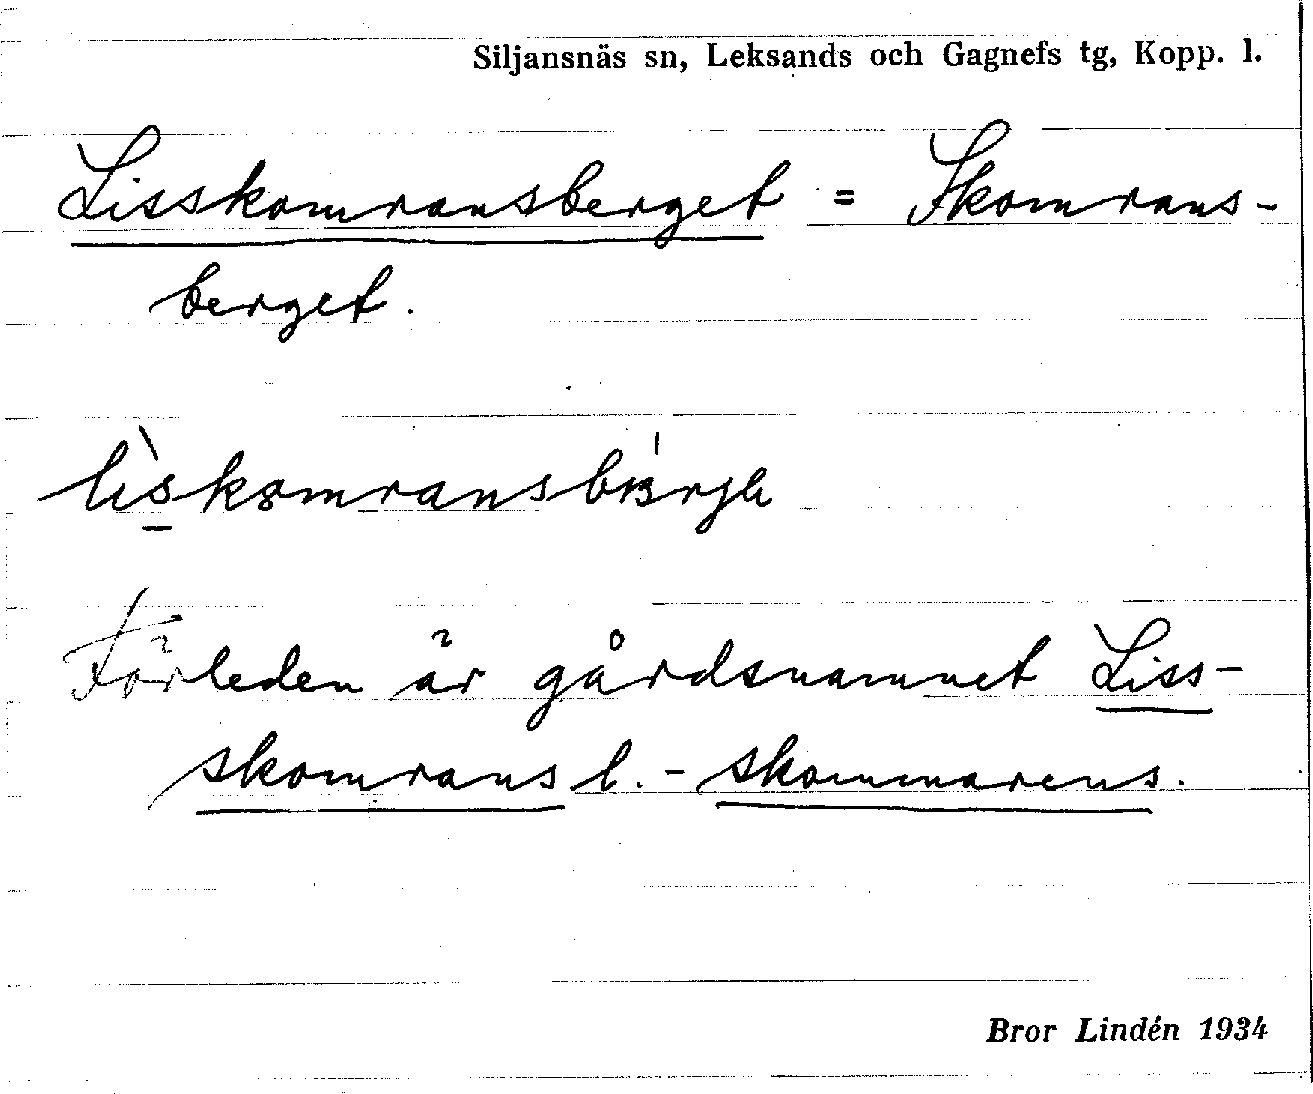 Siljansnäs sn, Leksands och Gagnefs tg, Kopp. l.
Lisskomransberget = Skomrans-
berget.
Förleden är gårdsnamnet Liss-
skomrans l. -skommarens.
Bror Lindén 1934